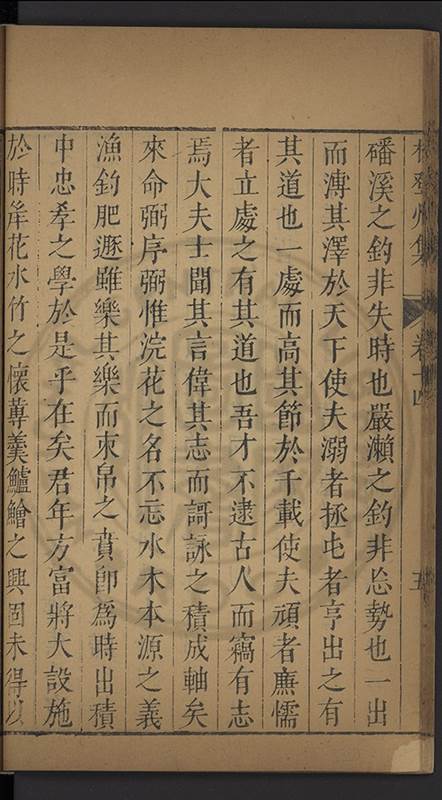 登州集 卷十四 五
磻溪之釣非失時也嚴瀨之釣非忘勢也一出
而溥其澤於天下使夫溺者拯屯者亨出之有
其道也一處而高其節於千載使夫頑者廉懦
者立處之有其道也吾才不逮古人而竊有志
焉大夫士聞其言偉其志而謌詠之積成軸矣
來命弼序弼惟浣花之名不忘水木本源之義
漁釣肥遯雖樂其樂而束帛之賁卽爲時出積
中忠孝之學於是乎在矣君年方富將大設施
於時峯花水竹之懷蓴羹鱸鱠之興固未得以